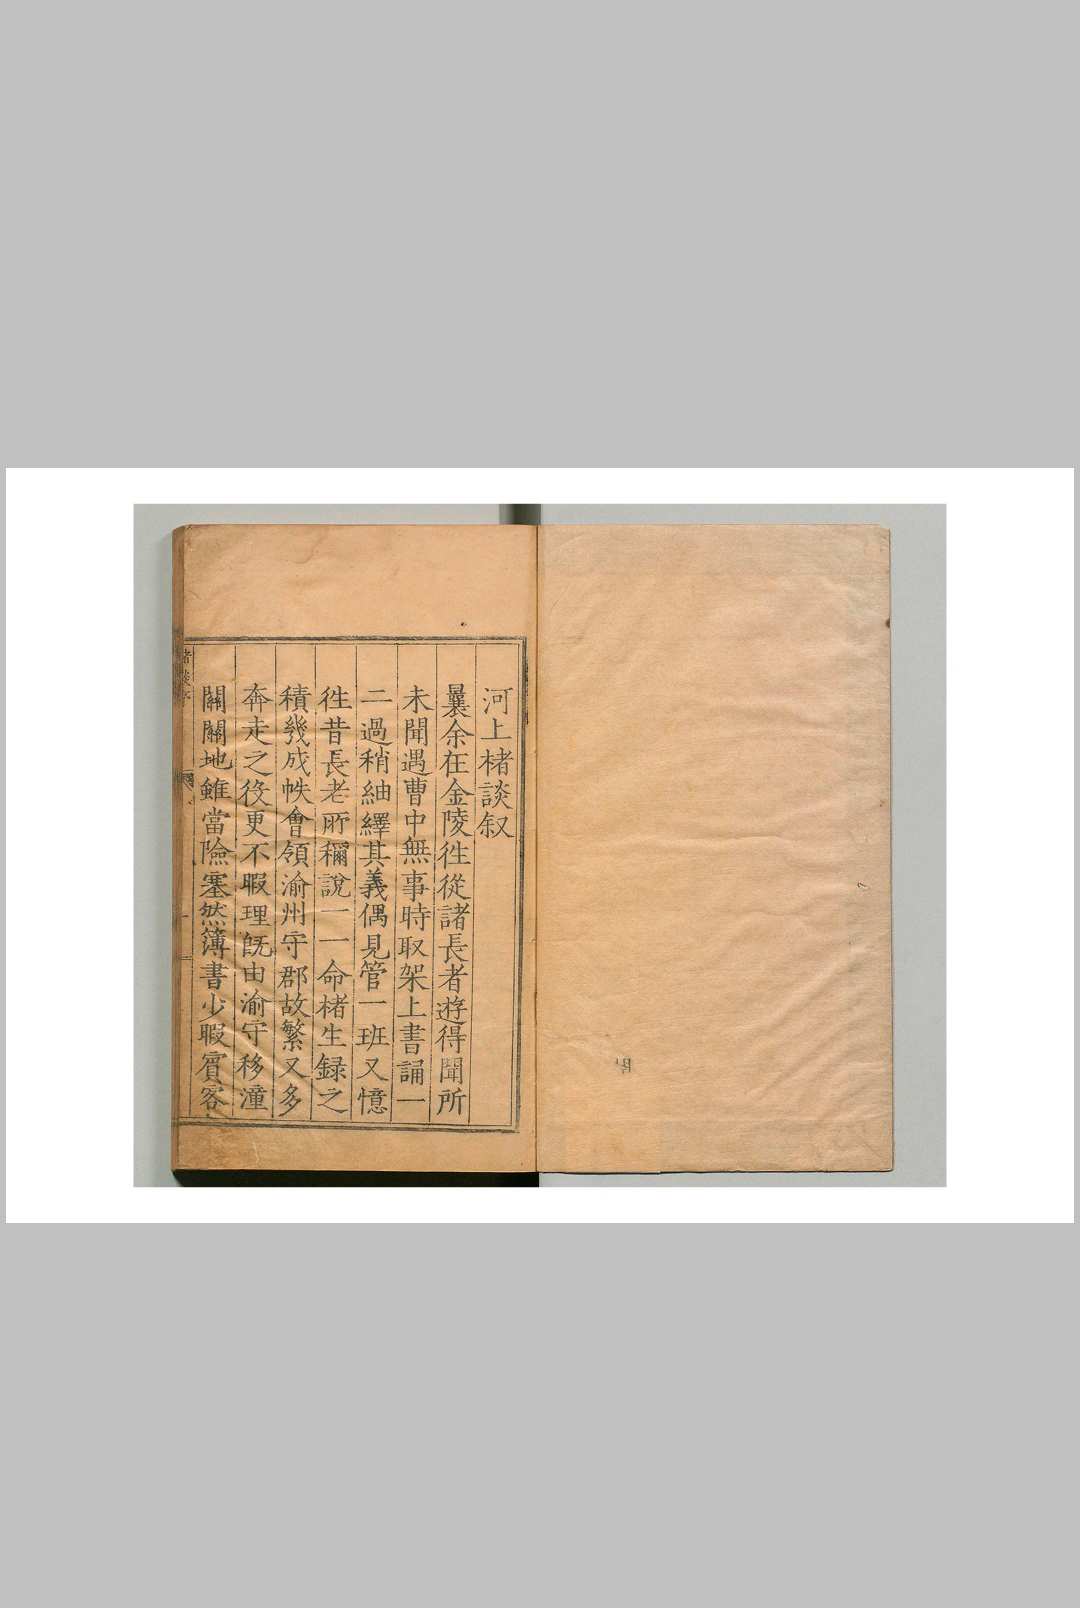 河上楮談叙
曩余在金陵徃從諸長者遊得聞所
未聞遇曹中無事時取架上書誦一
二過稍紬繹其義偶見管一班又憶
徃昔長老所稱說一一命楮生録之
積幾成帙會領渝州守郡故繁又多
奔走之役更不暇理旣由渝守移潼
關關地雖當險塞然簿書少暇賓客